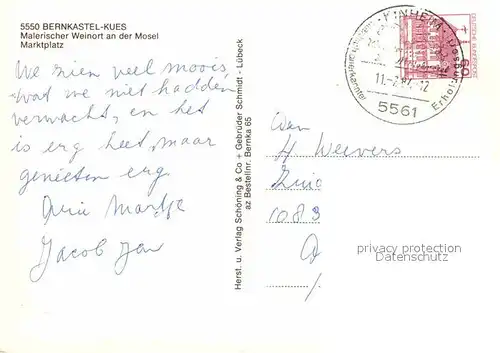 5550 BERNKASTEL-KUES
Malerischer Weinort an der Mosel
Marktplatz
We zien veel moois,
wat we niet hadden
verwacht, en het
is erg heet, maar
genieten erg
Jacob Jan
Herst. u. Verlag Schöning & Co + Gebrüder Schmidt · Lübeck
az Bestellnr. Bernka 65
KINHEIM
11.-7.
12
5561
Erholungsort
DEUTSCHE BUNDESPOST
60
Weevers
1083
privacy protection
Datenschutz